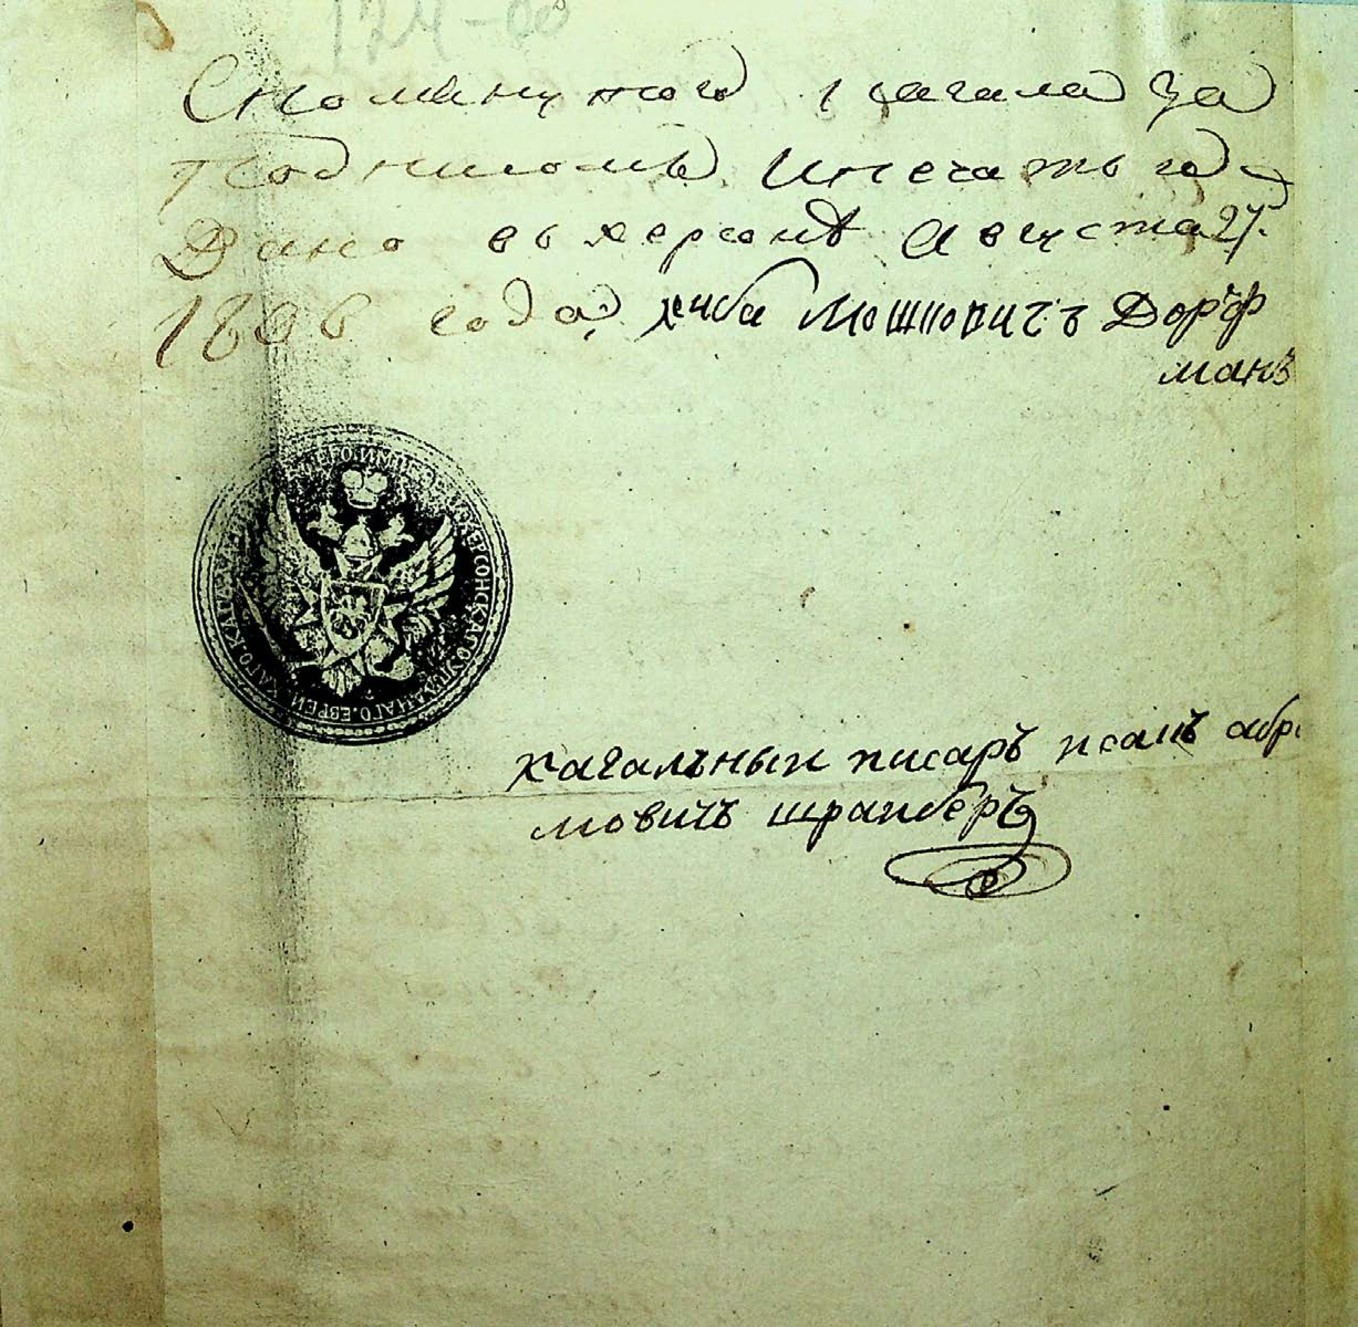 124-60
Споминутого кагала за
подписомъ ипечатью
Дано въ херсонѣ Августа 27.
1806 года, Мошковичъ Дорф
манъ
ХЕРСОНСКАГО.УѢЗДНАГО.ЕВРЕЙСКАГО.КАГАЛА
кагальный писаръ исакъ абра
мовичъ шрайберъ